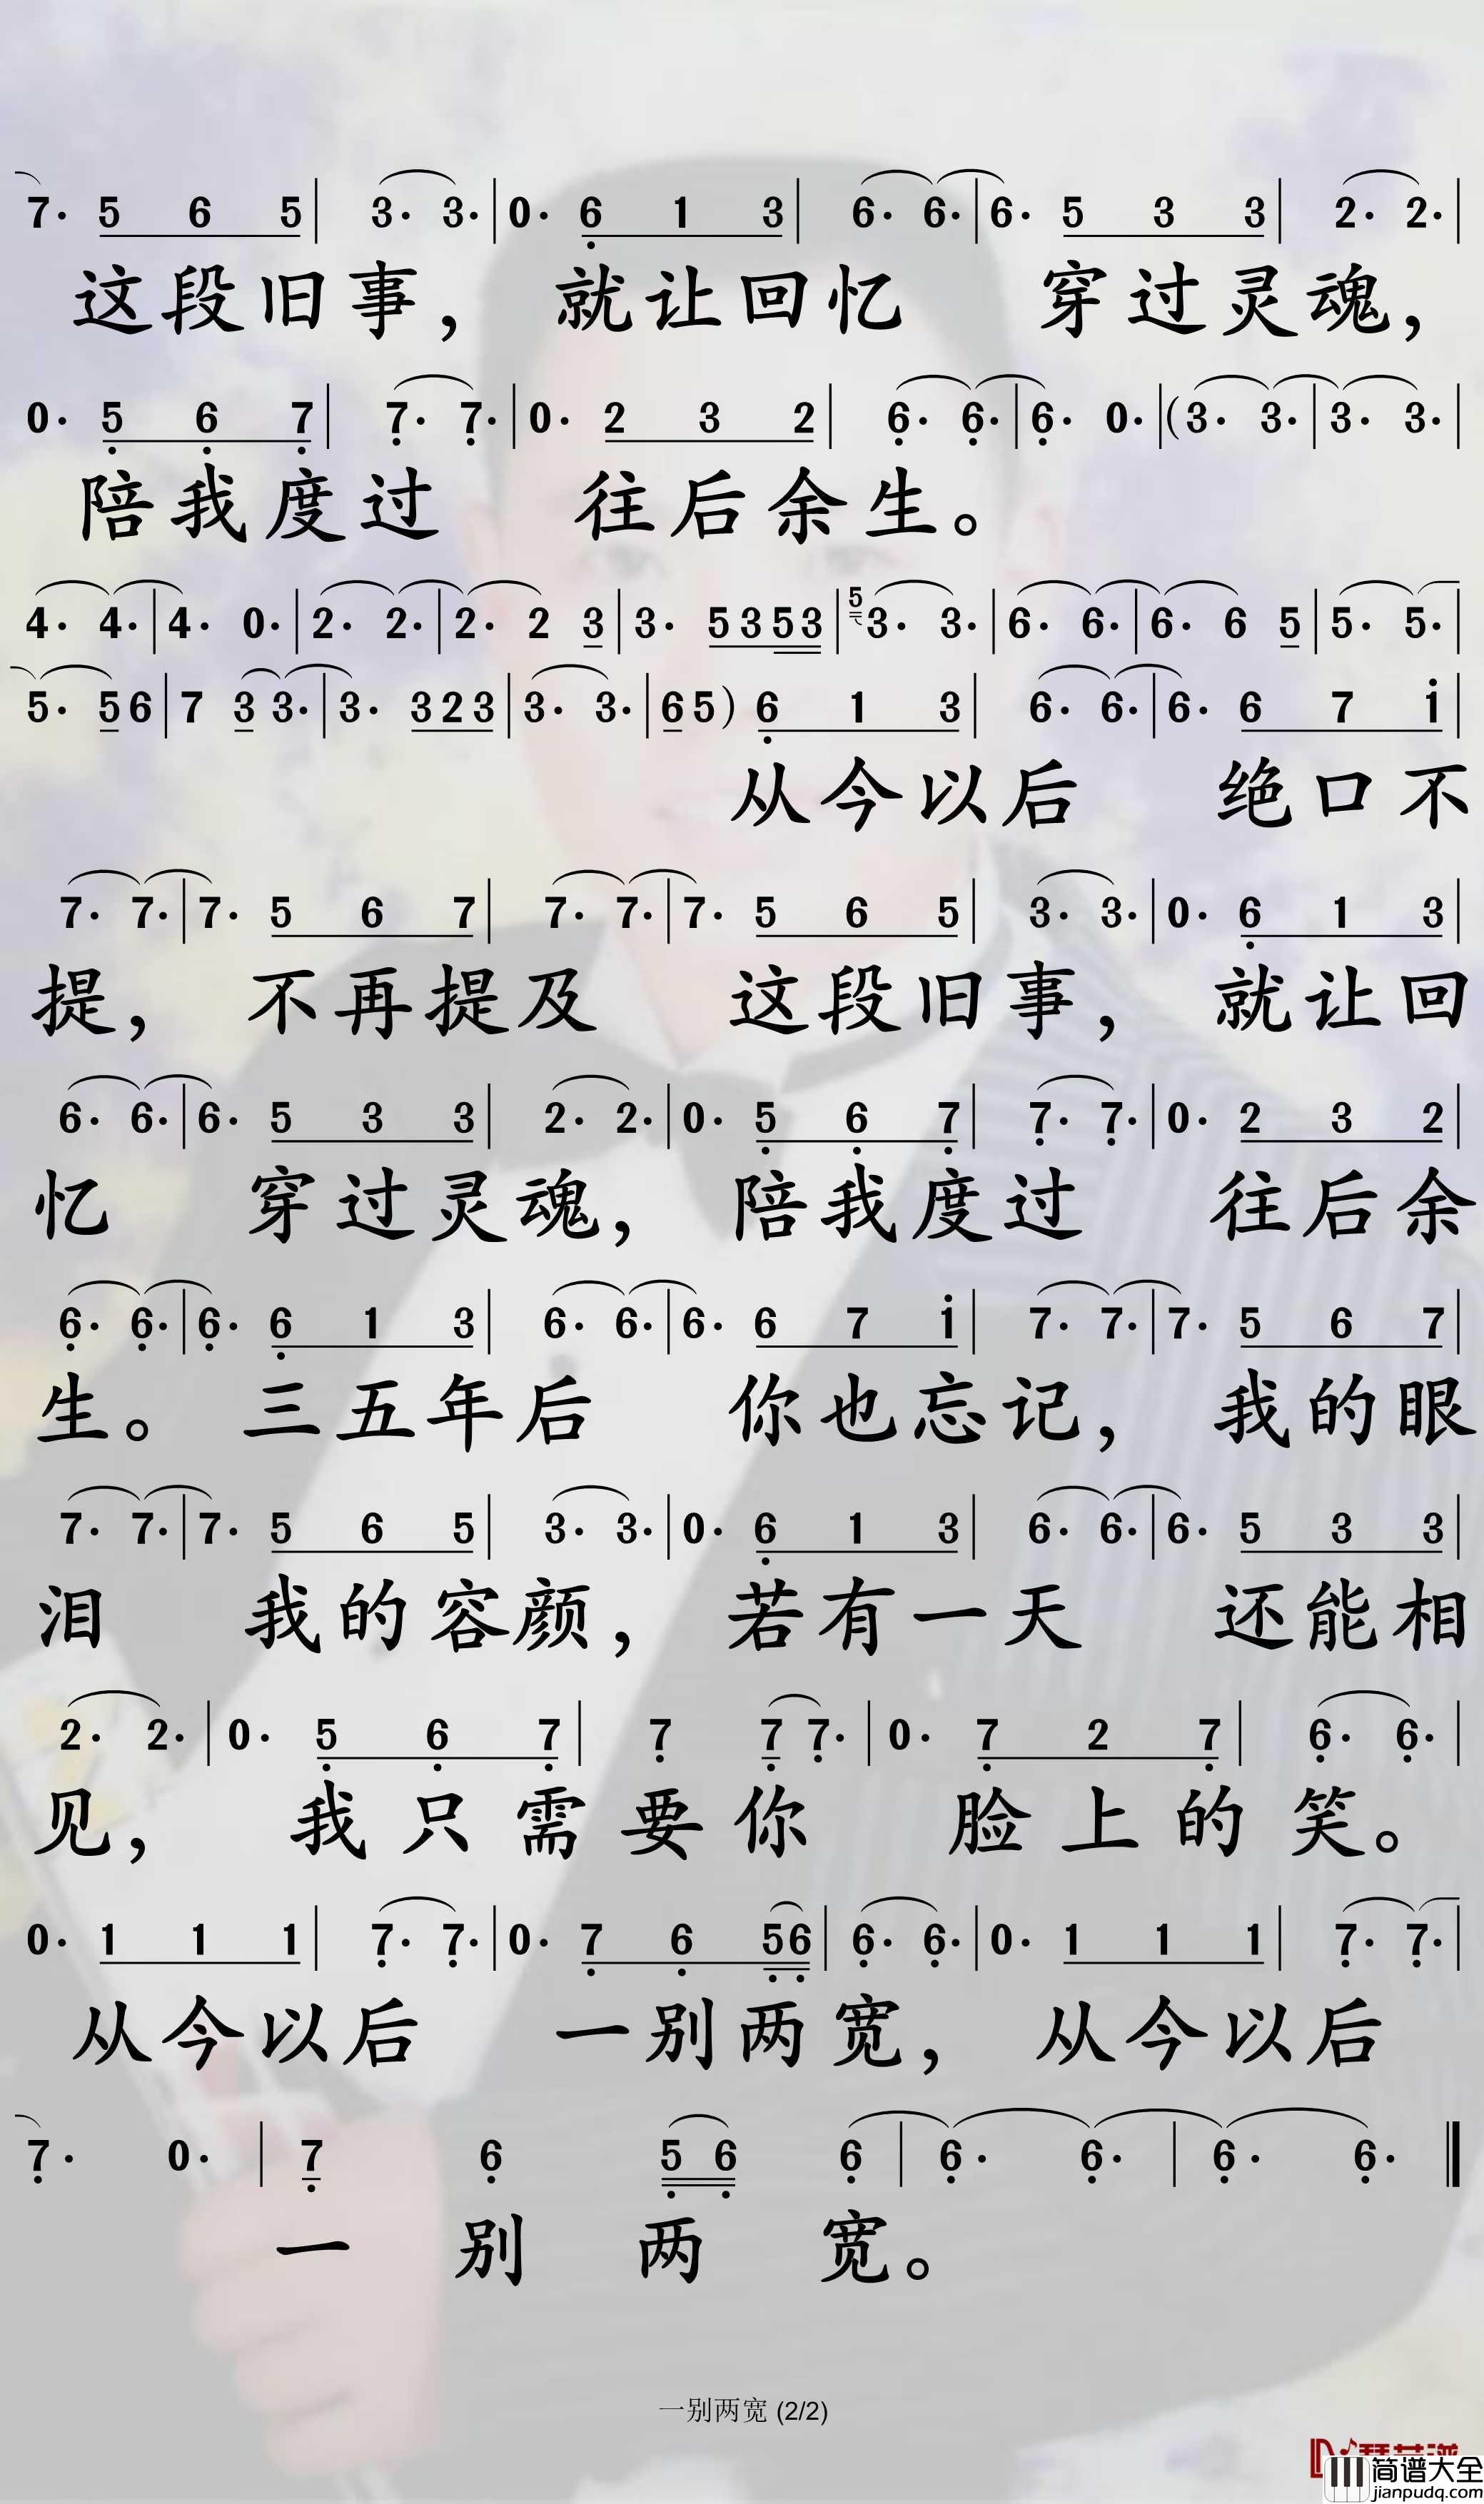 7· 5 6 5 | 3· 3· | 0· 6 1 3 | 6· 6· | 6· 5 3 3 | 2· 2· |
这段旧事， 就让回忆 穿过灵魂，
0· 5 6 7 | 7· 7· | 0· 2 3 2 | 6· 6· | 6· 0· | (3· 3· | 3· 3· |
陪我度过 往后余生。
4· 4· | 4· 0· | 2· 2· | 2· 2 3 | 3· 5 3 5 3 | 5 3· 3· | 6· 6· | 6· 6 5 | 5· 5· |
5· 5 6 | 7 3 3· | 3· 3 2 3 | 3· 3· | 6 5) 6 1 3 | 6· 6· | 6· 6 7 1 |
从今以后 绝口不
7· 7· | 7· 5 6 7 | 7· 7· | 7· 5 6 5 | 3· 3· | 0· 6 1 3 |
提， 不再提及 这段旧事， 就让回
6· 6· | 6· 5 3 3 | 2· 2· | 0· 5 6 7 | 7· 7· | 0· 2 3 2 |
忆 穿过灵魂， 陪我度过 往后余
6· 6· | 6· 6 1 3 | 6· 6· | 6· 6 7 1 | 7· 7· | 7· 5 6 7 |
生。 三五年后 你也忘记， 我的眼
7· 7· | 7· 5 6 5 | 3· 3· | 0· 6 1 3 | 6· 6· | 6· 5 3 3 |
泪 我的容颜， 若有一天 还能相
2· 2· | 0· 5 6 7 | 7 7 7· | 0· 7 2 7 | 6· 6· |
见， 我只需要你 脸上的笑。
0· 1 1 1 | 7· 7· | 0· 7 6 5 6 | 6· 6· | 0· 1 1 1 | 7· 7· |
从今以后 一别两宽， 从今以后
7· 0· | 7 6 5 6 6 | 6· 6· | 6· 6· ‖
一别两宽。
一别两宽 (2/2)
简谱大全
jianpudq.com